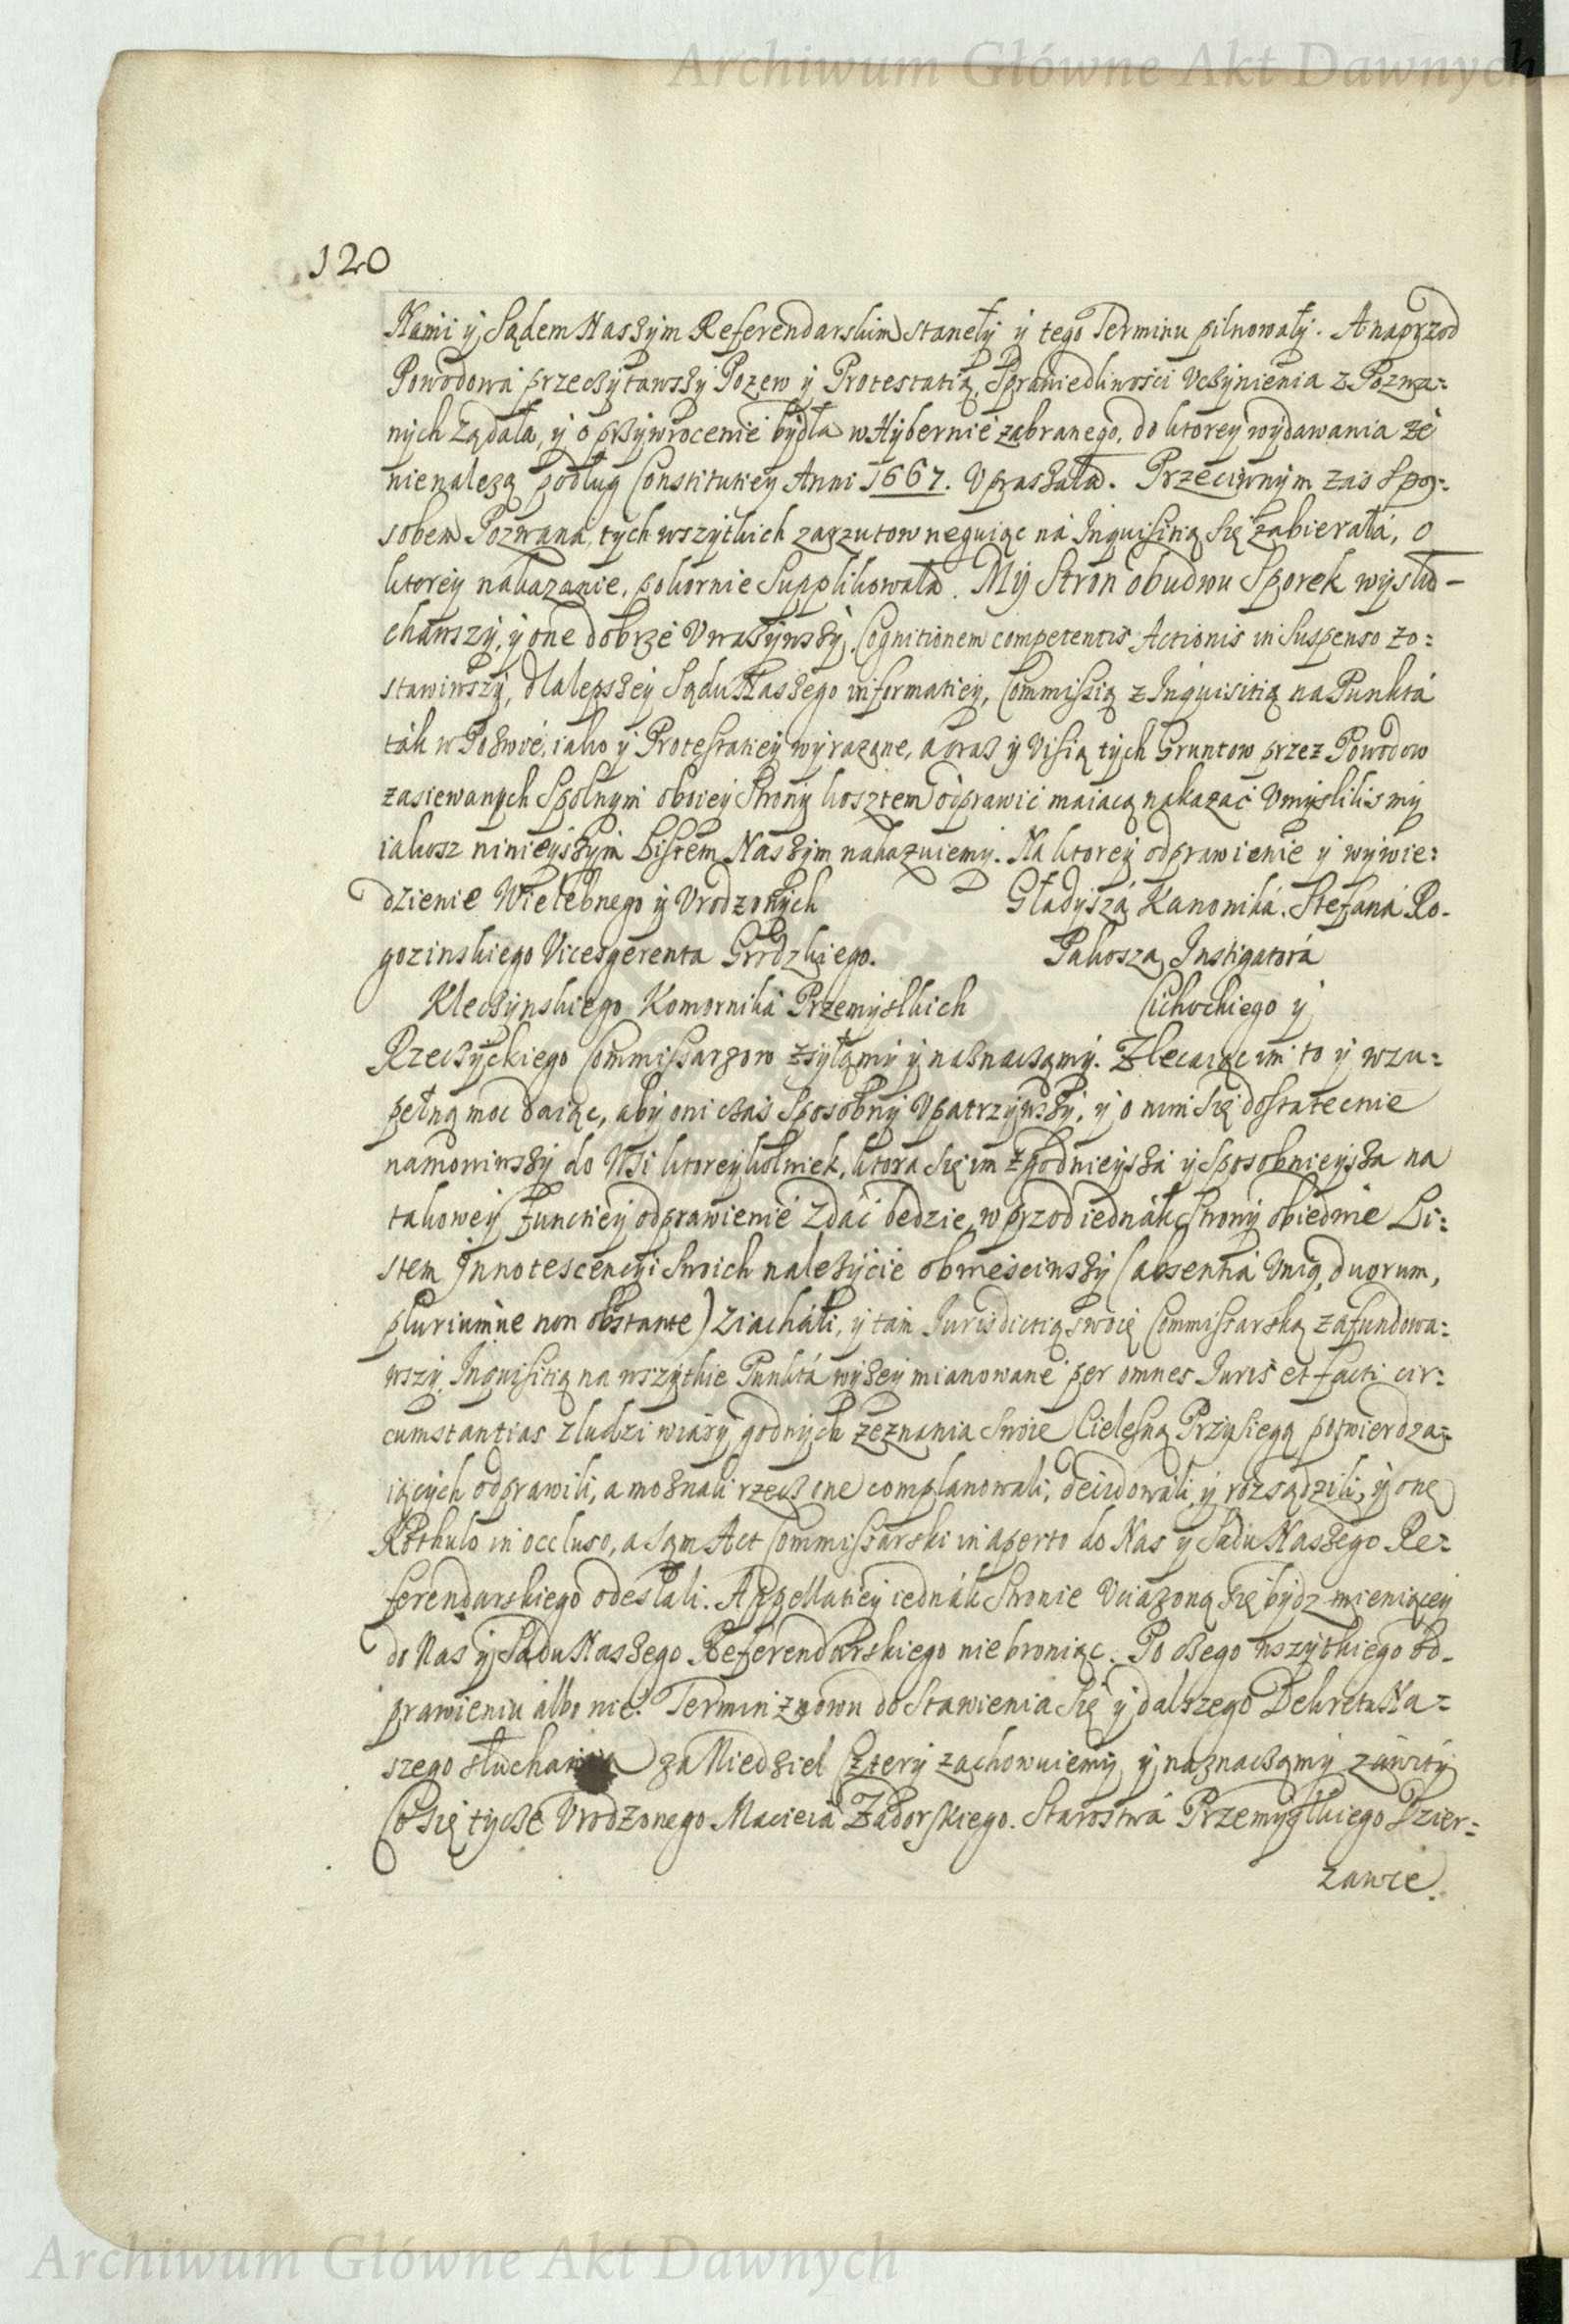 Archiwum Główne Akt Dawnych
120
Nami ÿ Sądem Naszÿm Referendarskim stanełÿ ÿ tego Terminu pilnowałÿ. A naprzod
Powodowá przeczÿtawszÿ Pozew ÿ Protestatią, Sprawiedliwości Vczÿnienia z Pozwa=
nÿch Ządała, ÿ o przÿwrocenie bÿdła w Hÿbernie zabranego, do ktorey wÿdawania że
nienalezą podług Constitutieÿ Anni 1667. Vpraszała. Przeciwnÿm zas Spo=
sobem Pozwana, tÿch wszÿtkich zarzutow neguiąc ná Inquisitią się zabierałá, o
ktoreÿ nakazanie, pokornie Supplikowała. Mÿ Stron obudwu Sporek wÿslu=
chawszÿ, ÿ one dobrze Vwazÿwszÿ, Cognitionem competentis Actionis in Suspenso zo=
stawiwszÿ, dla lepszeÿ Sądu Naszego informatieÿ, Commissią z Inquisitią na Punktá
ták w Pozwie, iako ÿ Protestatieÿ wÿrazone, a oraz ÿ Visią tÿch Gruntow przez Powodow
zasiewanÿch Spolnÿm oboieÿ Stronÿ kosztem odprawić maiącą nakazać Vmÿslilismÿ
iakosz ninieÿszÿm Listem Naszÿm nakazuiemÿ. Na ktoreÿ odprawienie ÿ wÿwie=
dzienie Wielebnego ÿ Vrodzonÿch Gładÿszá Kanoniká. Stefaná Ro-
gozinskiego Vicesgerenta Grodzkiego. Pakosza Instigatorá
Kleczÿnskiego Komorniká Przemÿslkich Cichockiego ÿ
Rzeczÿckiego Commissarzow zsÿłamÿ ÿ naznaczamÿ. Zlecaiąc im to ÿ wzu=
pełną moc daiąc, abÿ oni czas Sposobnÿ Vpatrzÿwszÿ, ÿ o nim się dostatecnie
namowiwszÿ do Wsi ktoreÿkolwiek, ktora się im zgodnieÿszá ÿ Sposobnieÿsza na
takoweÿ functieÿ odprawienie Zdać bedzie, w przod iednák Stronÿ obiedwie Li=
stem Innotescencÿi Swoich należÿcie obwieściwszÿ (absentiá Unią, duorum,
pluriumve non obstante) Ziacháli, ÿ tam Iurisdictią swoię Commissarską zafundowa=
wszÿ, Inquisitią na wszÿtkie Punktá wÿzeÿ mianowane per omnes Iuris et facti cir=
cumstantias z ludzi wiarÿ godnÿch zeznania Swoie Cielesną Przÿsięgą potwierdza=
iącÿch odprawili, a moznali rzecz one complanowali, decidowáli, ÿ rozsądzili, ÿ one
Rothulo in occluso, a sąm Act Commissarski in aperto do Nas ÿ Sądu Naszego Re=
ferendarskiego odesłali. Appellatieÿ iednák Stronie Vciązoną się bÿdz mieniąceÿ
do Nas ÿ Sądu Naszego Referendarskiego nie broniąc. Po czego wszÿtkiego od-
prawieniu álbo nie. Termin znowu do Stawienia się ÿ dalszego Dekretu Na=
szego słuchania za Niedziel Czterÿ zachowuiemÿ ÿ naznaczamÿ zawitÿ
Co się tÿcze Vrodzonego Macieiá Zadorskiego. Starostwá Przemÿslkiego Dzier=
zawce.
Archiwum Główne Akt Dawnych